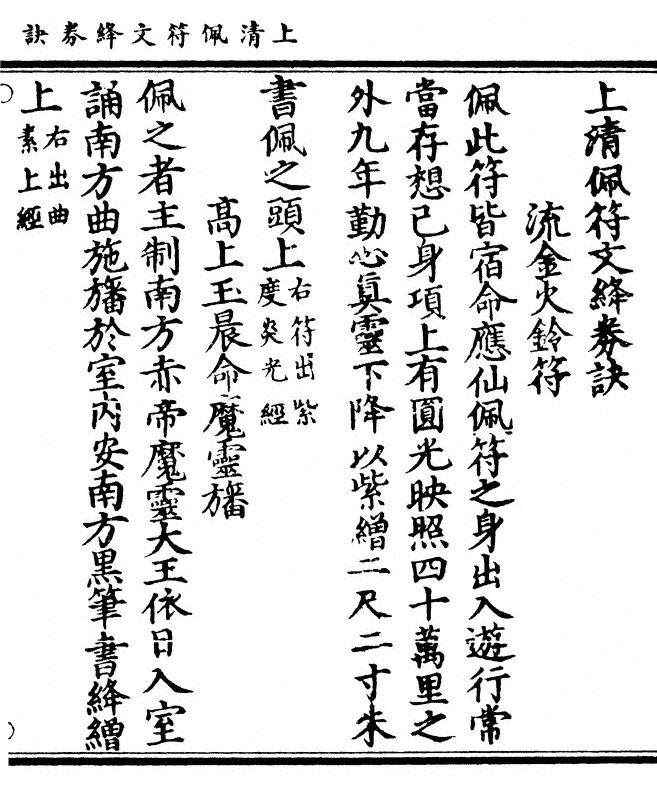 上清佩符文絳券訣
上清佩符文絳券訣
流金火鈴符
佩此符皆宿命應仙佩符之身出入遊行常
當存想己身項上有圓光映照四十萬里之
外九年勤心真靈下降以紫繒二尺二寸朱
書佩之頭上右符出紫度炎光經
高上玉晨命魔靈旛
佩之者主制南方赤帝魔靈大王依日入室
誦南方曲施旛於室內安南方黑筆書絳繒
上右出曲素上經